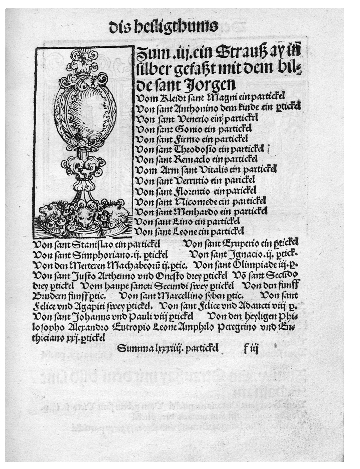 dis heiligthums
Zum .iij. ein Strauß ay in
silber gefaßt mit dem bil-
de sant Jorgen
Vom Kleidt sant Magni ein partickel
Von sant Anthonino dem kinde ein ptickel
Von sant Venerio ein partickel
Von sant Gonio ein partickel
Von sant Firmo ein partickel
Von sant Theodosio ein partickel
Von sant Remaclo ein partickel
Vom Arm sant Vitalis ein partickel
Von sant Verrutio ein partickel
Von sant Florentio ein partickel
Von sant Nicomede ein partickel
Von sant Menhardo ein partickel
Von sant Lino ein partickel
Von sant Leone ein partickel
Von sant Stanislao ein partickel Von sant Emperio ein ptickel
Von sant Simphoriano .ij. ptickel Von sant Ignacio .ij. ptick-
Von den Merteren Machabeorū ij. ptic. Von sant Olimpiade iij. p-
Von sant Justo Arthemio vnd Onesto drey ptickel Vō sant Secūdo
drey ptickel Vom haupt sancti Secundi zwey ptickel Von den funff
Brudern funff ptic. Von sant Marcellino siben ptic. Von sant
Felice vnd Agapito zwey ptickel. Von sant Felice vnd Adaucti viij p-
Von sant Johannis vnd Pauli viij ptickel Von den heyligen Phi-
losopho Alexandro Eutropio Leone Amphilo Peregrino vnd Eu-
thiciano xxj. ptickel
Summa lxxxiij. partickel f iij